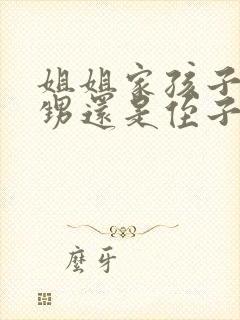 姐姐家孩子
甥還是侄子
麼牙